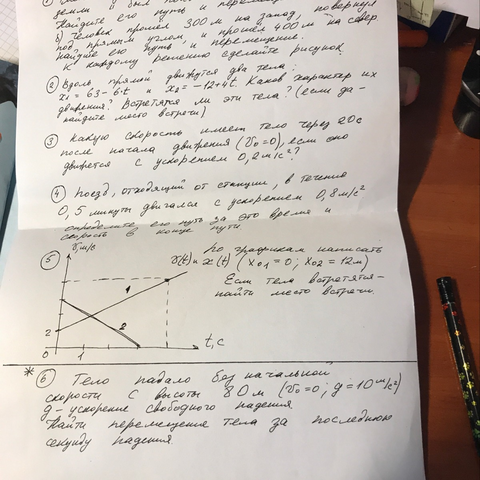 земли и был пойман
Найдите его путь и перемещение.
б) Человек прошёл 300м на запад, повернул
под прямым углом, и прошёл 400м на север
найдите его путь и перемещение.
К каждому решению сделайте рисунок
② Вдоль прямой движутся два тела:
x₁ = 63 - 6t и x₂ = -12+4t. Каков характер их
движения? Встретятся ли эти тела? (если да-
найдите место встречи)
③ Какую скорость имеет тело через 20с
после начала движения (V₀=0), если оно
движется с ускорением 0,2м/с²?
④ Поезд, отходящий от станции, в течение
0,5 минуты двигался с ускорением 0,8м/с²
определите его путь за это время и
скорость в конце пути.
⑤ v м/с
По графикам написать
v(t) и x(t) (x₀₁=0; x₀₂=12м)
Если тела встретятся-
найти место встречи.
1
2
2
0 1 t,с
* ⑥ Тело падало без начальной
скорости с высоты 80м (V₀=0; g=10м/с²)
g - ускорение свободного падения.
Найти перемещение тела за последнюю
секунду падения.